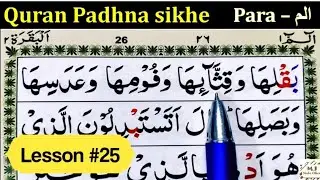 Quran Padhna sikhe Para – الم
البقرة ٢ 26 ٢٦ الٓمّٓ ١
بَقْلِهَا وَقِثَّآئِهَا وَفُوْمِهَا وَعَدَسِهَا
وَبَصَلِهَا ؕ قَالَ اَتَسْتَبْدِلُوْنَ الَّذِيْ
Lesson #25
هُوَ اَدْ بِالَّذِيْ